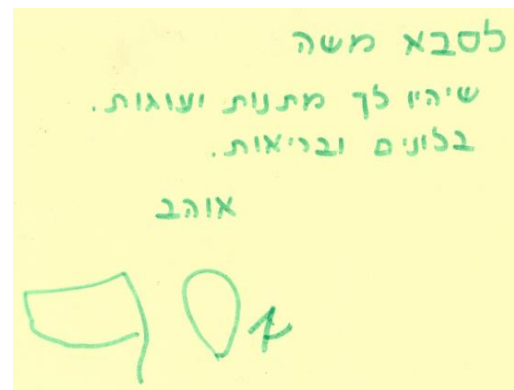 לסבא משה
שיהיו לך מתנות ועוגות.
בלונים ובריאות.
אוהב